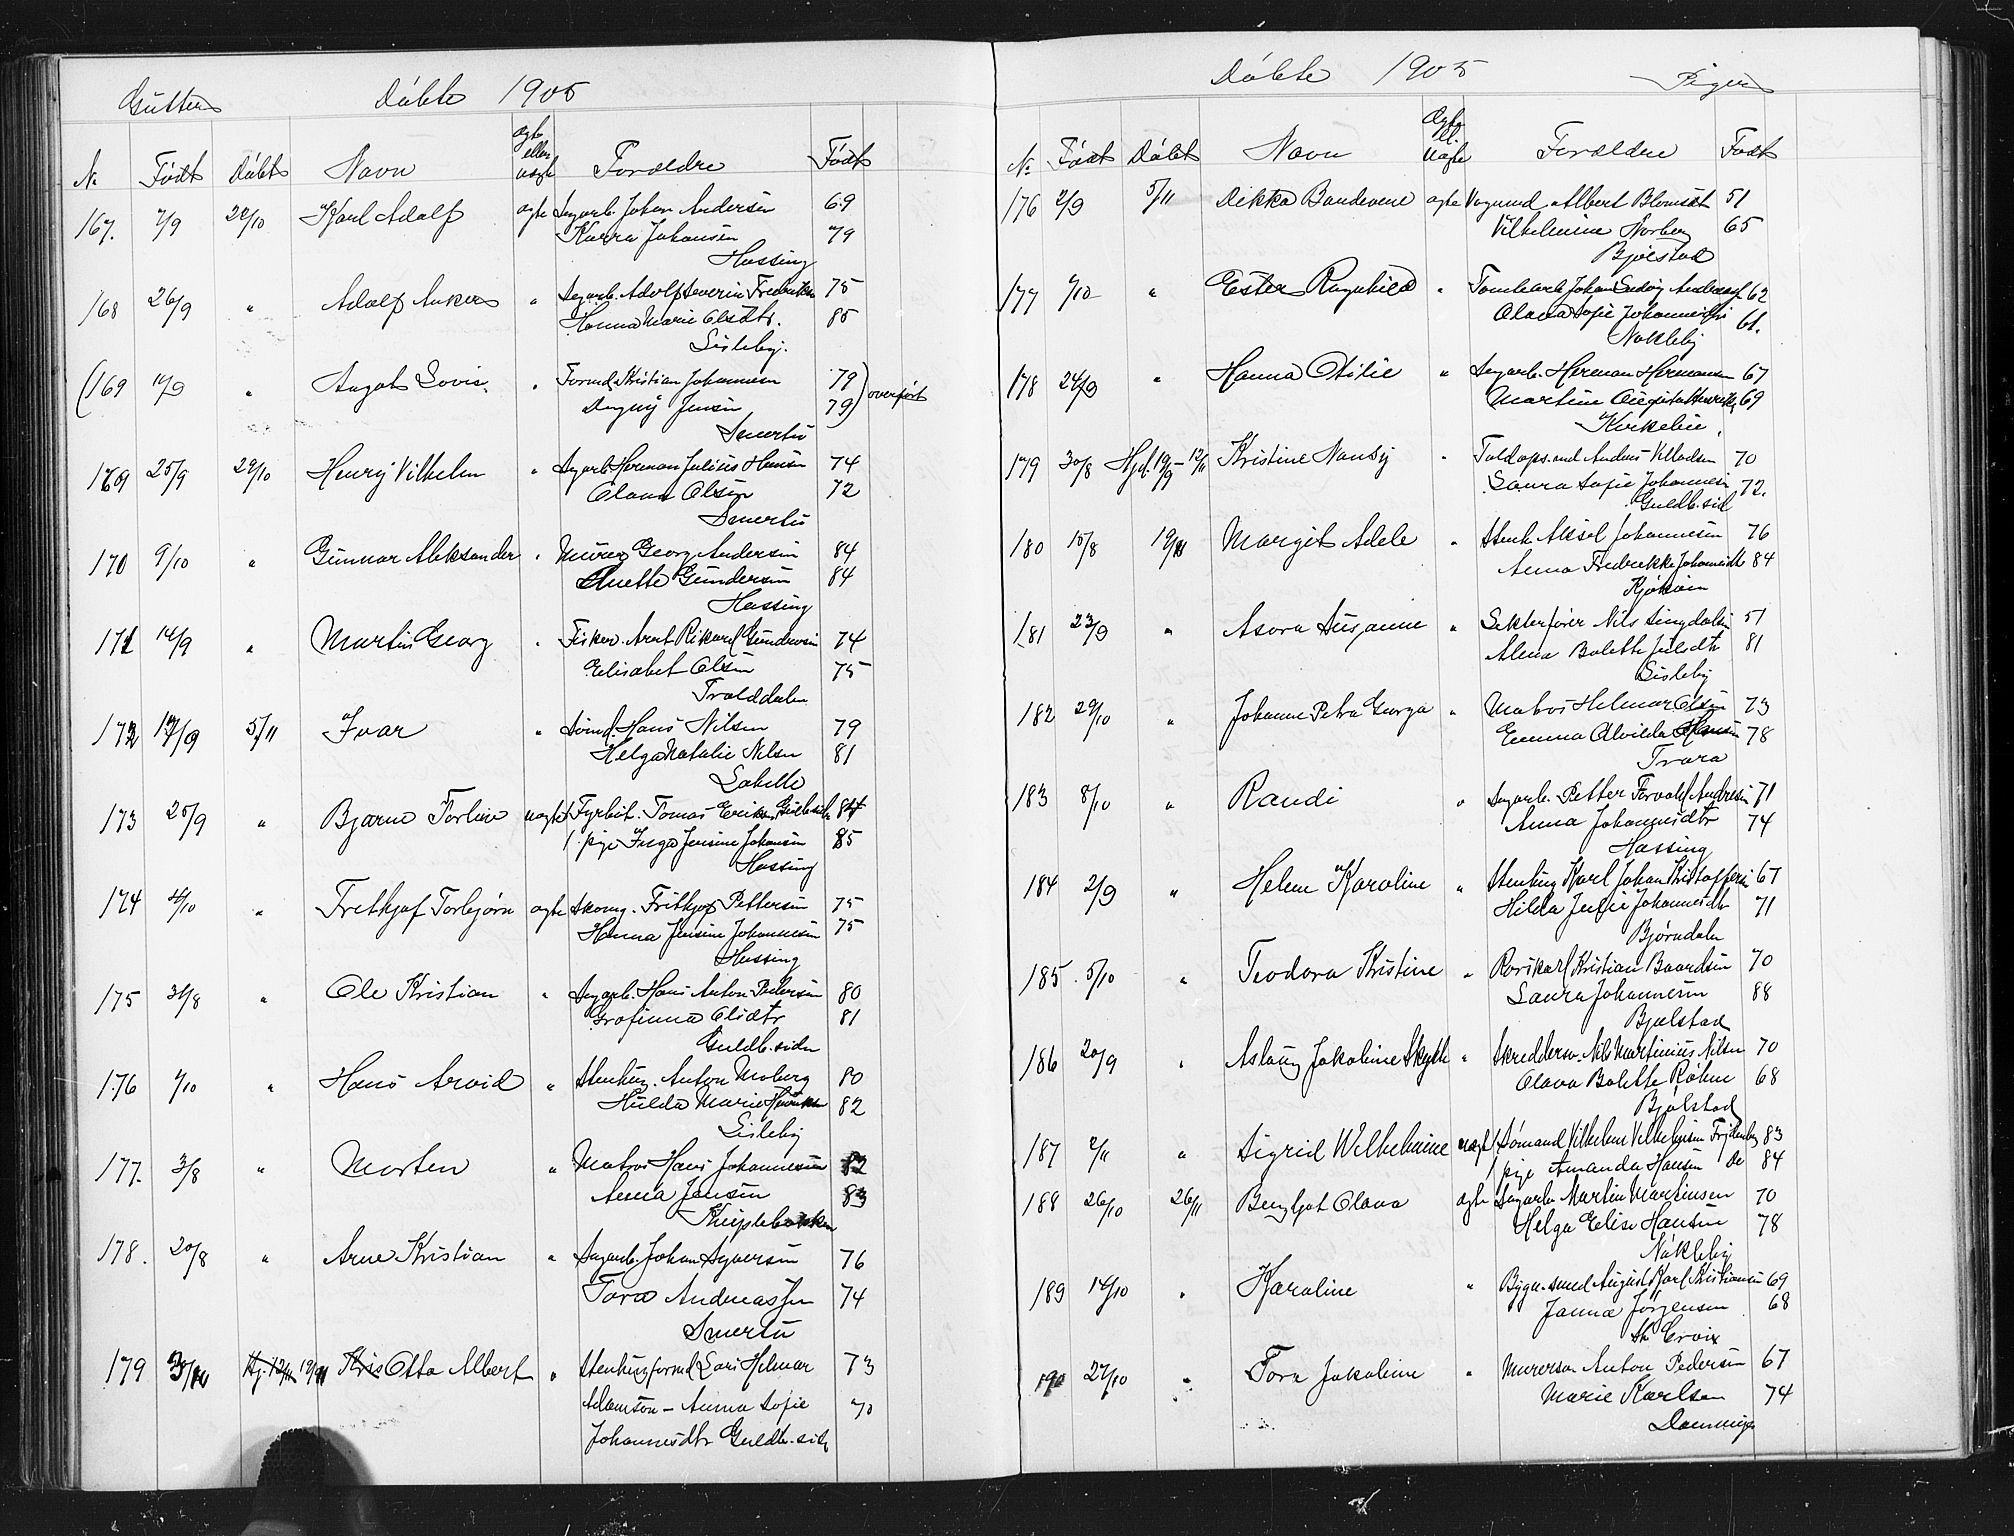 Gutter Døbte 1905
N. Født Døbt Navn ægte eller uægte Forældre Født
167. 7/9 22/10 Karl Adolf ægte Dagarb. Johan Andersen 69
Karra Johansen 79
Hassing
168 26/9 " Adolf Anker " Dagarb. Adolf Severin Fredriksen 75
Hanna Marie Olsdtr. 85
Sisleby.
(169 " August Lovis. " Formd Kristian Johannesen 79) overført
Dagny Jensen 79)
Smertu
169 25/9 29/10 Henry Vilhelm " Dagarb. Herman Julius Hansen 74
Olava Olsen 72
Smertu
170 9/10 " Gunnar Aleksander " Murer Georg Andersen 84
Anette Gundersen 84
Hassing
171 14/9 " Martin Georg " Fisker. Arnt Rikard Gundersen 74
Elisabet Olsen 75
Trolddalen
172 17/9 5/11 Ivar " Sømd Hans Nilsen 79
Helga Natalie Nilsen 81
Labelle
173 25/9 " Bjarne Torleiv uægte Fyrbøt. Tomas Eriksen Guldb.siden 84
pige Inga Jensine Johansen 85
Hassing
174 4/10 " Fretkjof Torbjørn ægte Skomg. Fritkjof Pettersen 75
Hanna Jensine Johannesen 75
Hassing
175 31/8 " Ole Kristian " Dagarb. Hans Anton Pedersen 80
Grofinna Olsdtr 81
Guldb.siden
176 1/10 " Hans Arvid " Stenhug. Anton Moberg 80
Hulda Marie Henriksen 82
Sisleby
177. 3/8 " Morten " Matros Hans Johannesen 82
Anna Jensen 83
178. 20/8 " Arne Kristian " Dagarb. Johan Syversen 76
Tora Andreassen 74
Smertu
179 Hj. 12/11 19/11 Otto Albert " Stenhug.formd Lars Helmar 73
Adamson – Anna Sofie 70
Johannesdtr Guldb.sid
Døbte 1905 Piger
No Født Døbt Navn Ægte el. uægte Forældre Født
176 2/9 5/11 Dikka Bandevene ægte Vognmd Albert Blomsøt 51
Vilhelmine Norberg 65
Bjølstad
177 1/10 " Ester Ragnhild " Tomtearb Johan Ludvig Andreassen 62
Olava Sofie Johannesen 61.
Nøkleby
178 24/9 " Hanna Otilie " Dagarb. Herman Hermansen 67
Martine Augusta Henriks 69
Kirkelien
179 30/8 Hjd. 19/9 – 12/11 Kristine Nansy " Toldops.md Anders Villadsen 70
Laura Sofie Johannesen 72.
Guldb.sid
180 15/8 19/11 Margit Adele " Stenh Aksel Johannesen 76
Anna Fredrikke Johannesdt 84
Kjøkøen
181 23/9 " Asora Susanne " Lekterfører Nils Lingdalen 51
Alma Bolette Julsdtr 81
Sisleby
182 29/10 " Johanne Petra Georga " Matros Helmar Olsen 73
Emma Alvilda Hansen 78
Trara
183 8/10 " Randi " Dagarb. Petter Torvald Andresen 71
Anna Johannesdtr 74
Hassing
184 2/9 " Helene Karoline " Stenhug Karl Johan Kristoffersen 67
Hilda Johannesdtr 71
Bjørndalen
185. 5/10 " Teodora Kristine " Rorskarl Kristian Baardsen 70
Laura Johannesen 88
Bjølstad
186 20/9 " Aslaug Jakobine Skytte " Skreddersv. Nils Martinius Nilsen 70
Olava Bolette Røhne 68
Bjølstad
187 2/11 " Sigrid Wilhelmine uægte Sømand Vilhelm Vilhelmsen 83
pige Amanda Hansen Do 84
188 26/10 26/11 Bergljot Olava ægte Dagarb. Martin Martinsen 70
Helga Elise Hansen 78
Nøkleby
189 14/10 " Karoline " Bygn.smed August Karl Kristiansen 69
Janna Jørgensen 68
St. Croix
190 27/10 " Tora Jakobine " Murersv. Anton Pedersen 67
Marie Karlsen 74
Damminger